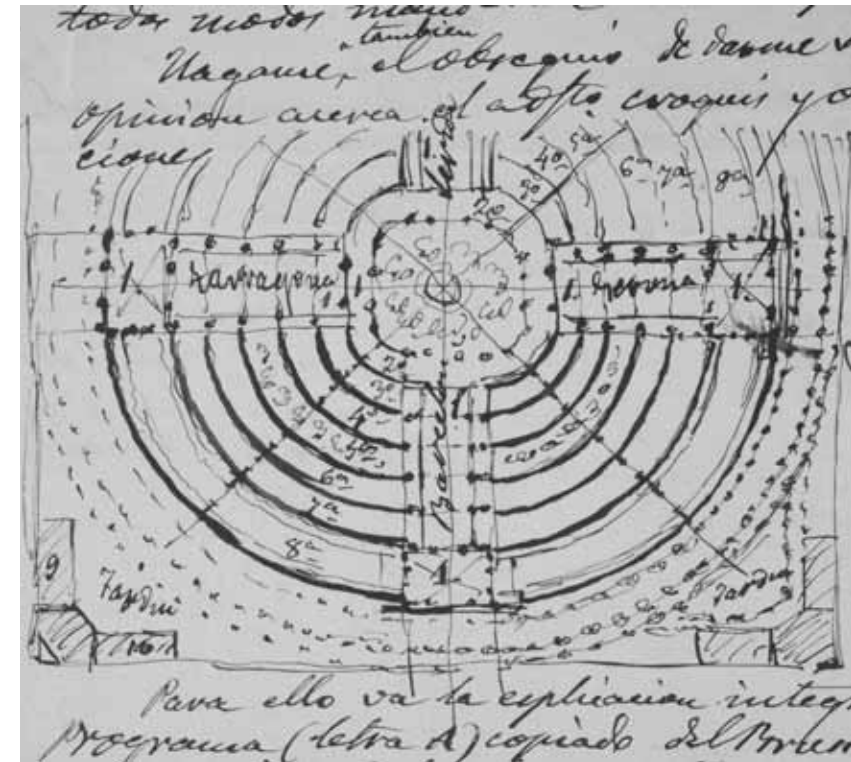 todos modos
tambien
Hagame, el obsequio de darme
opinion acerca el adjto croquis y
ciones
Lerida
5ª
4ª
3ª
2ª
6ª 7ª 8ª
1 Tarragona 1
1 Gerona 1
2ª
3ª
4ª
5ª
6ª
7ª
8ª
Barcel
1
1
9
Jardin
Jardin
10
Para ello va la esplicacion integ
Programa (letra A) copiado del Brun